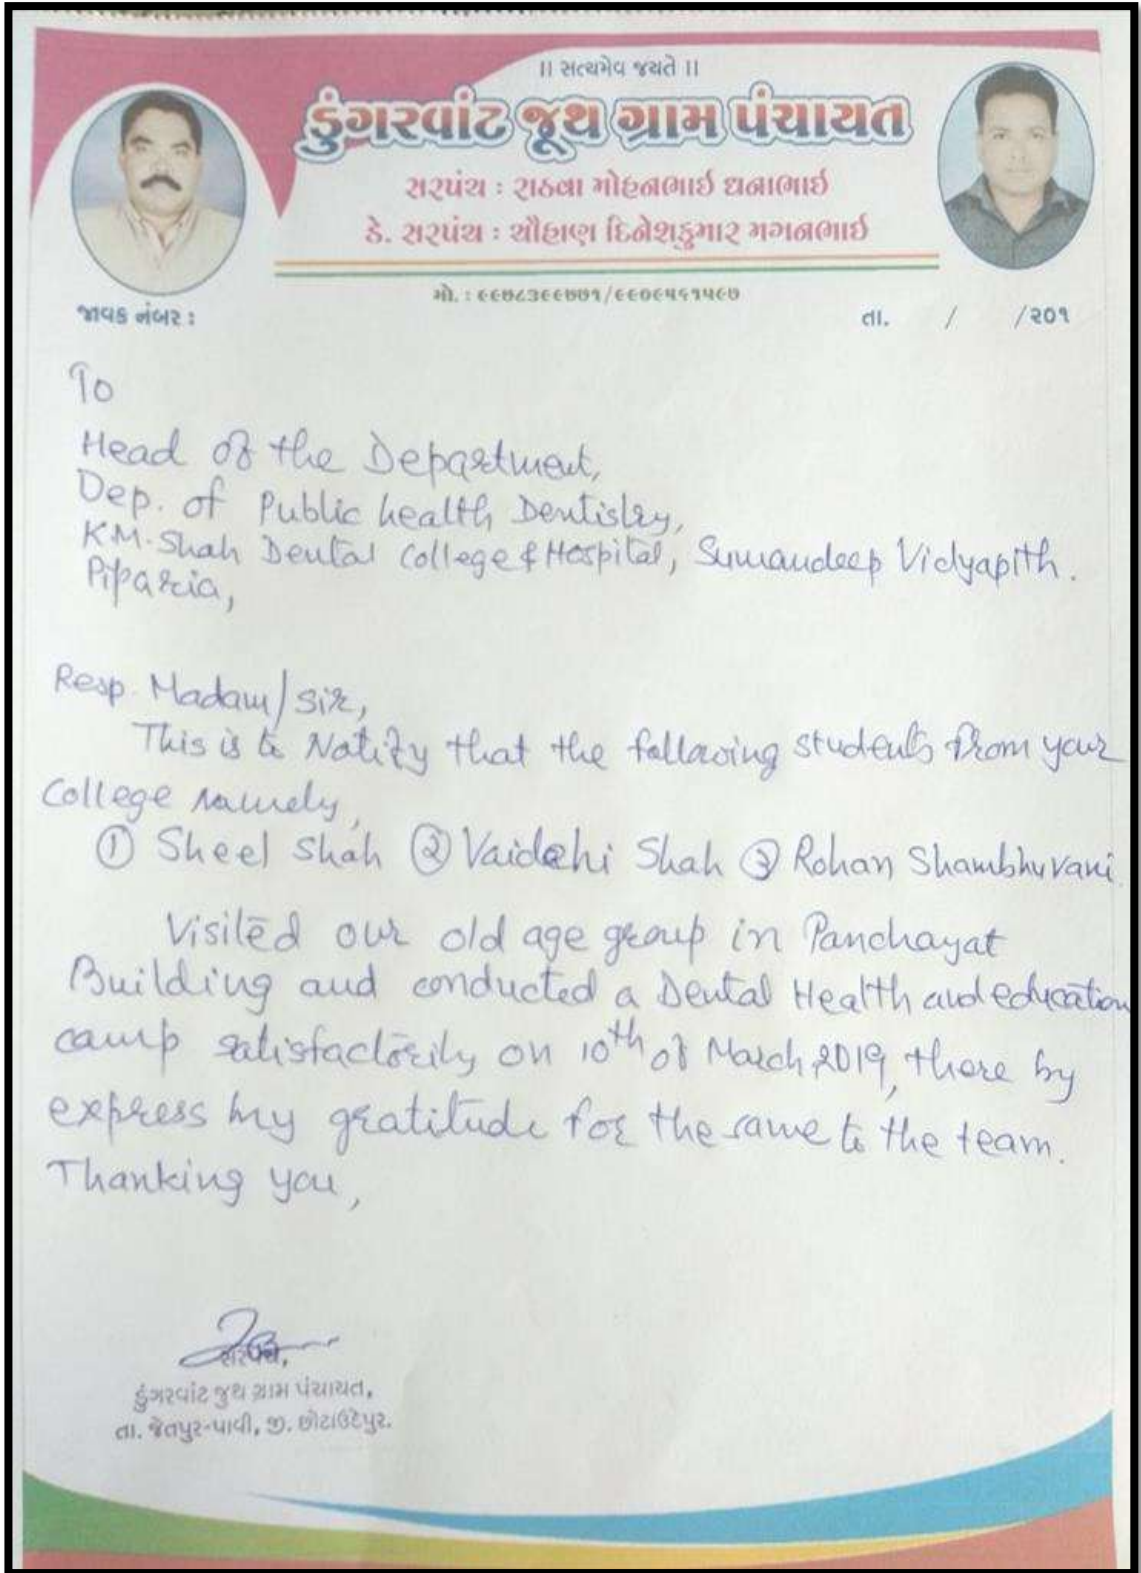 ॥ સત્યમેવ જયતે ॥
ડુંગરવાંટ જૂથ ગ્રામ પંચાયત
સરપંચ : રાઠવા મોહનભાઈ ધનાભાઈ
ડે. સરપંચ : ચૌહાણ દિનેશકુમાર મગનભાઈ
મો. : ૯૯૭૮૩૯૯૭૭૧/૯૯૦૯૫૬૧૫૯૭
જાવક નંબર :
તા. / /૨૦૧
To
Head of the Department,
Dep. of Public health Dentistry,
K.M. Shah Dental College & Hospital, Sumandeep Vidyapith.
Piparia,
Resp. Madam/Sir,
This is to Notify that the following students from your
College namely,
① Sheel Shah ② Vaidehi Shah ③ Rohan Shambhuvani.
Visited our old age group in Panchayat
Building and conducted a Dental Health and education
camp satisfactorily on 10th of March 2019, there by
express my gratitude for the same to the team.
Thanking you,
સરપંચ,
ડુંગરવાંટ જુથ ગ્રામ પંચાયત,
તા. જેતપુર-પાવી, જી. છોટાઉદેપુર.